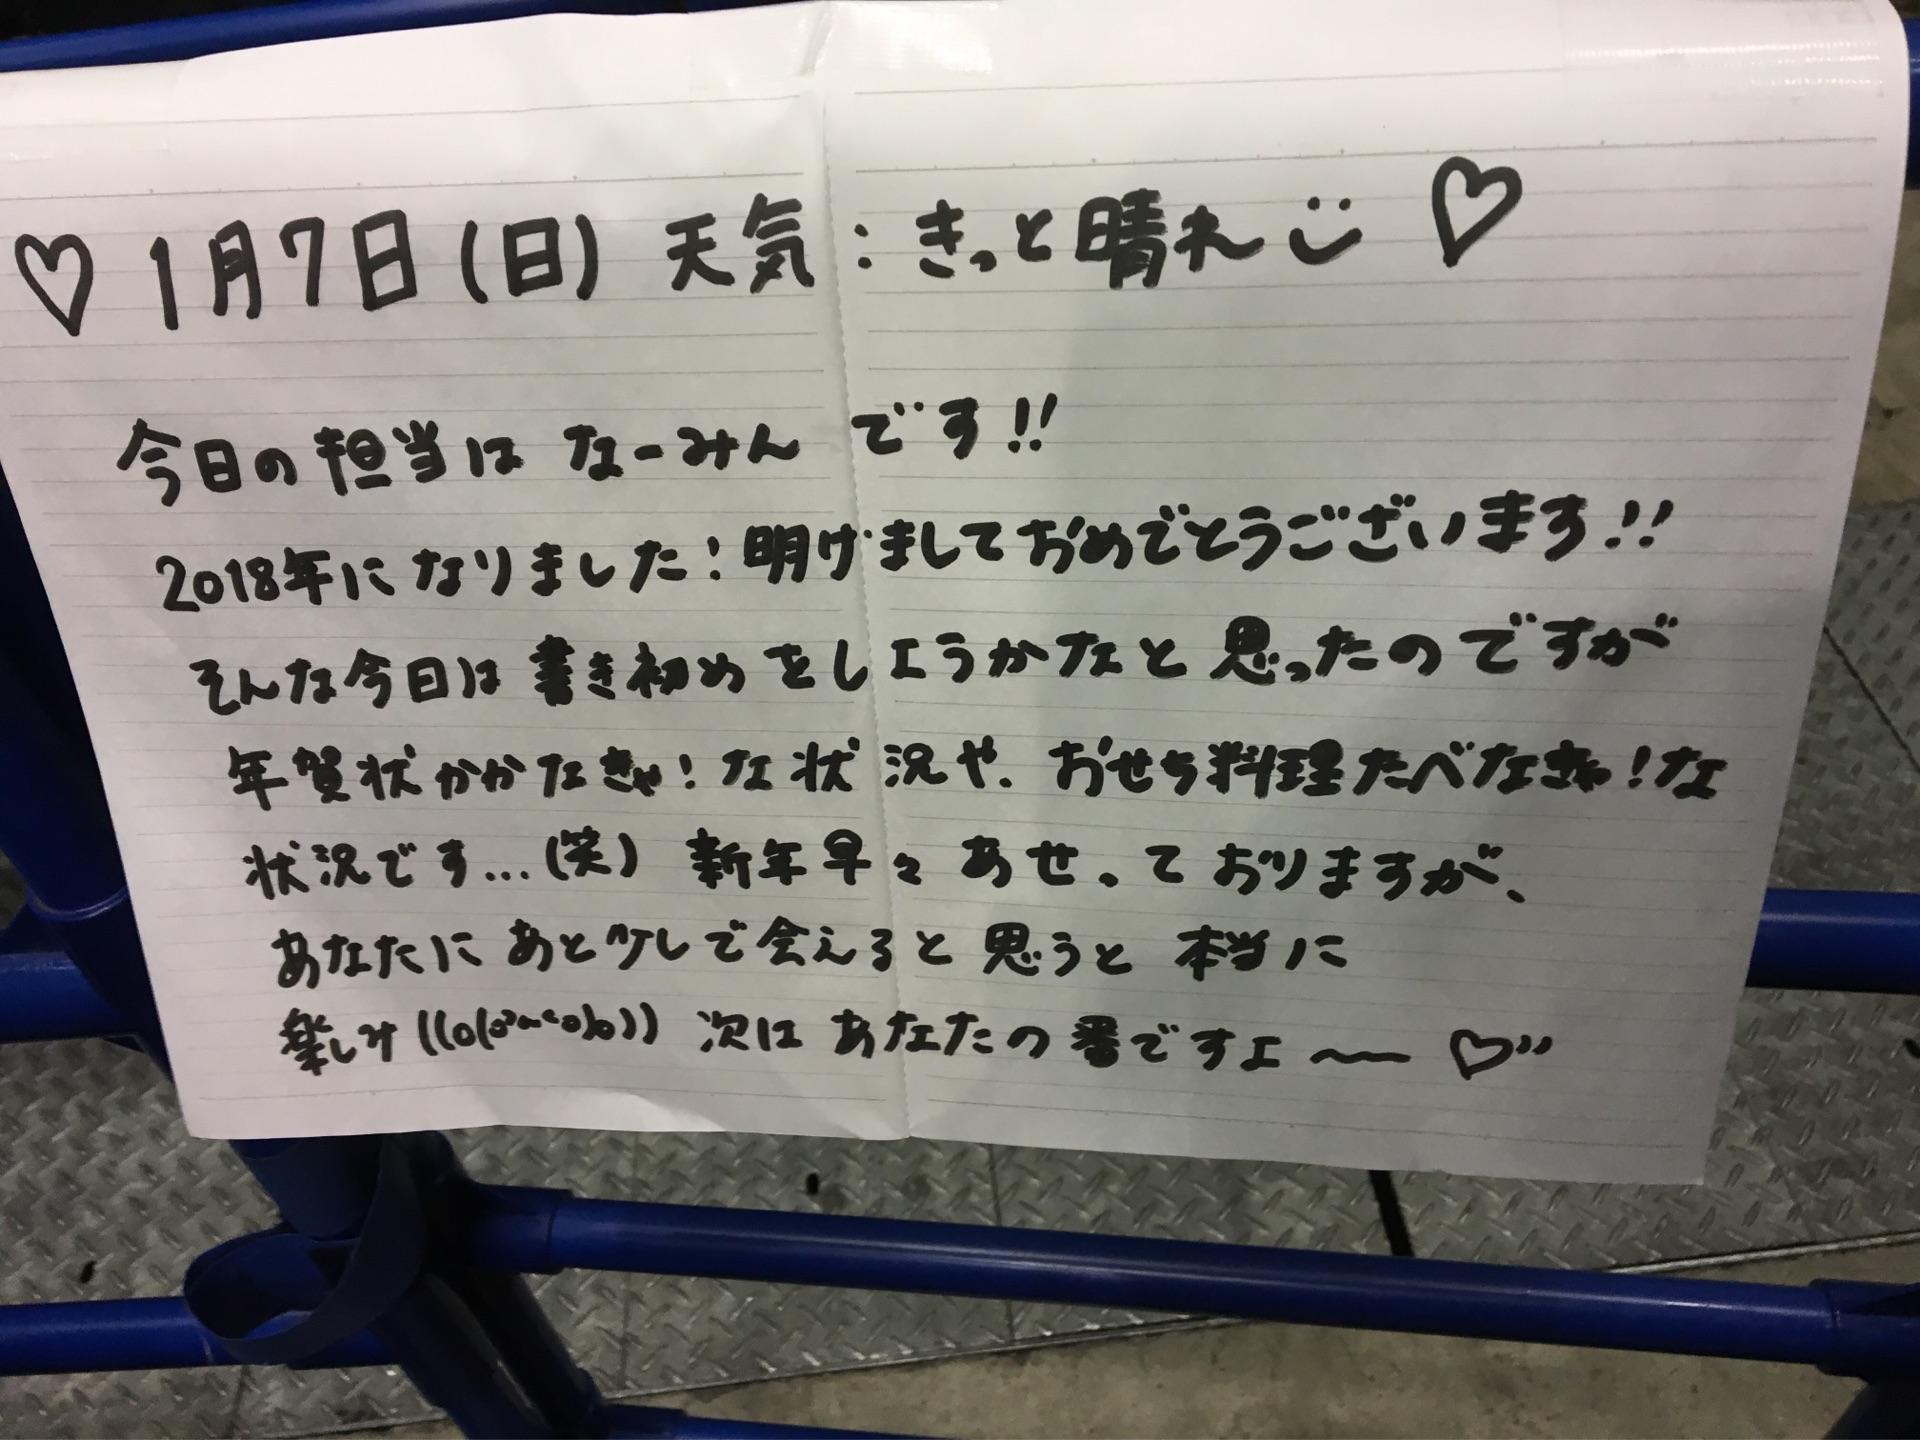 ♡ 1月7日(日) 天気：きっと晴れ ♡
今日の担当は なーみん です!!
2018年に なりました！明けましておめでとうございます!!
そんな今日は 書き初めをしようかなと 思ったのですが
年賀状かかなきゃ！な状況や、おせち料理たべなきゃ！な
状況です…(笑) 新年早々 あせっておりますが、
あなたに あと少しで会えると 思うと 本当に
楽しみ 次は あなたの 番ですよ〜 ♡